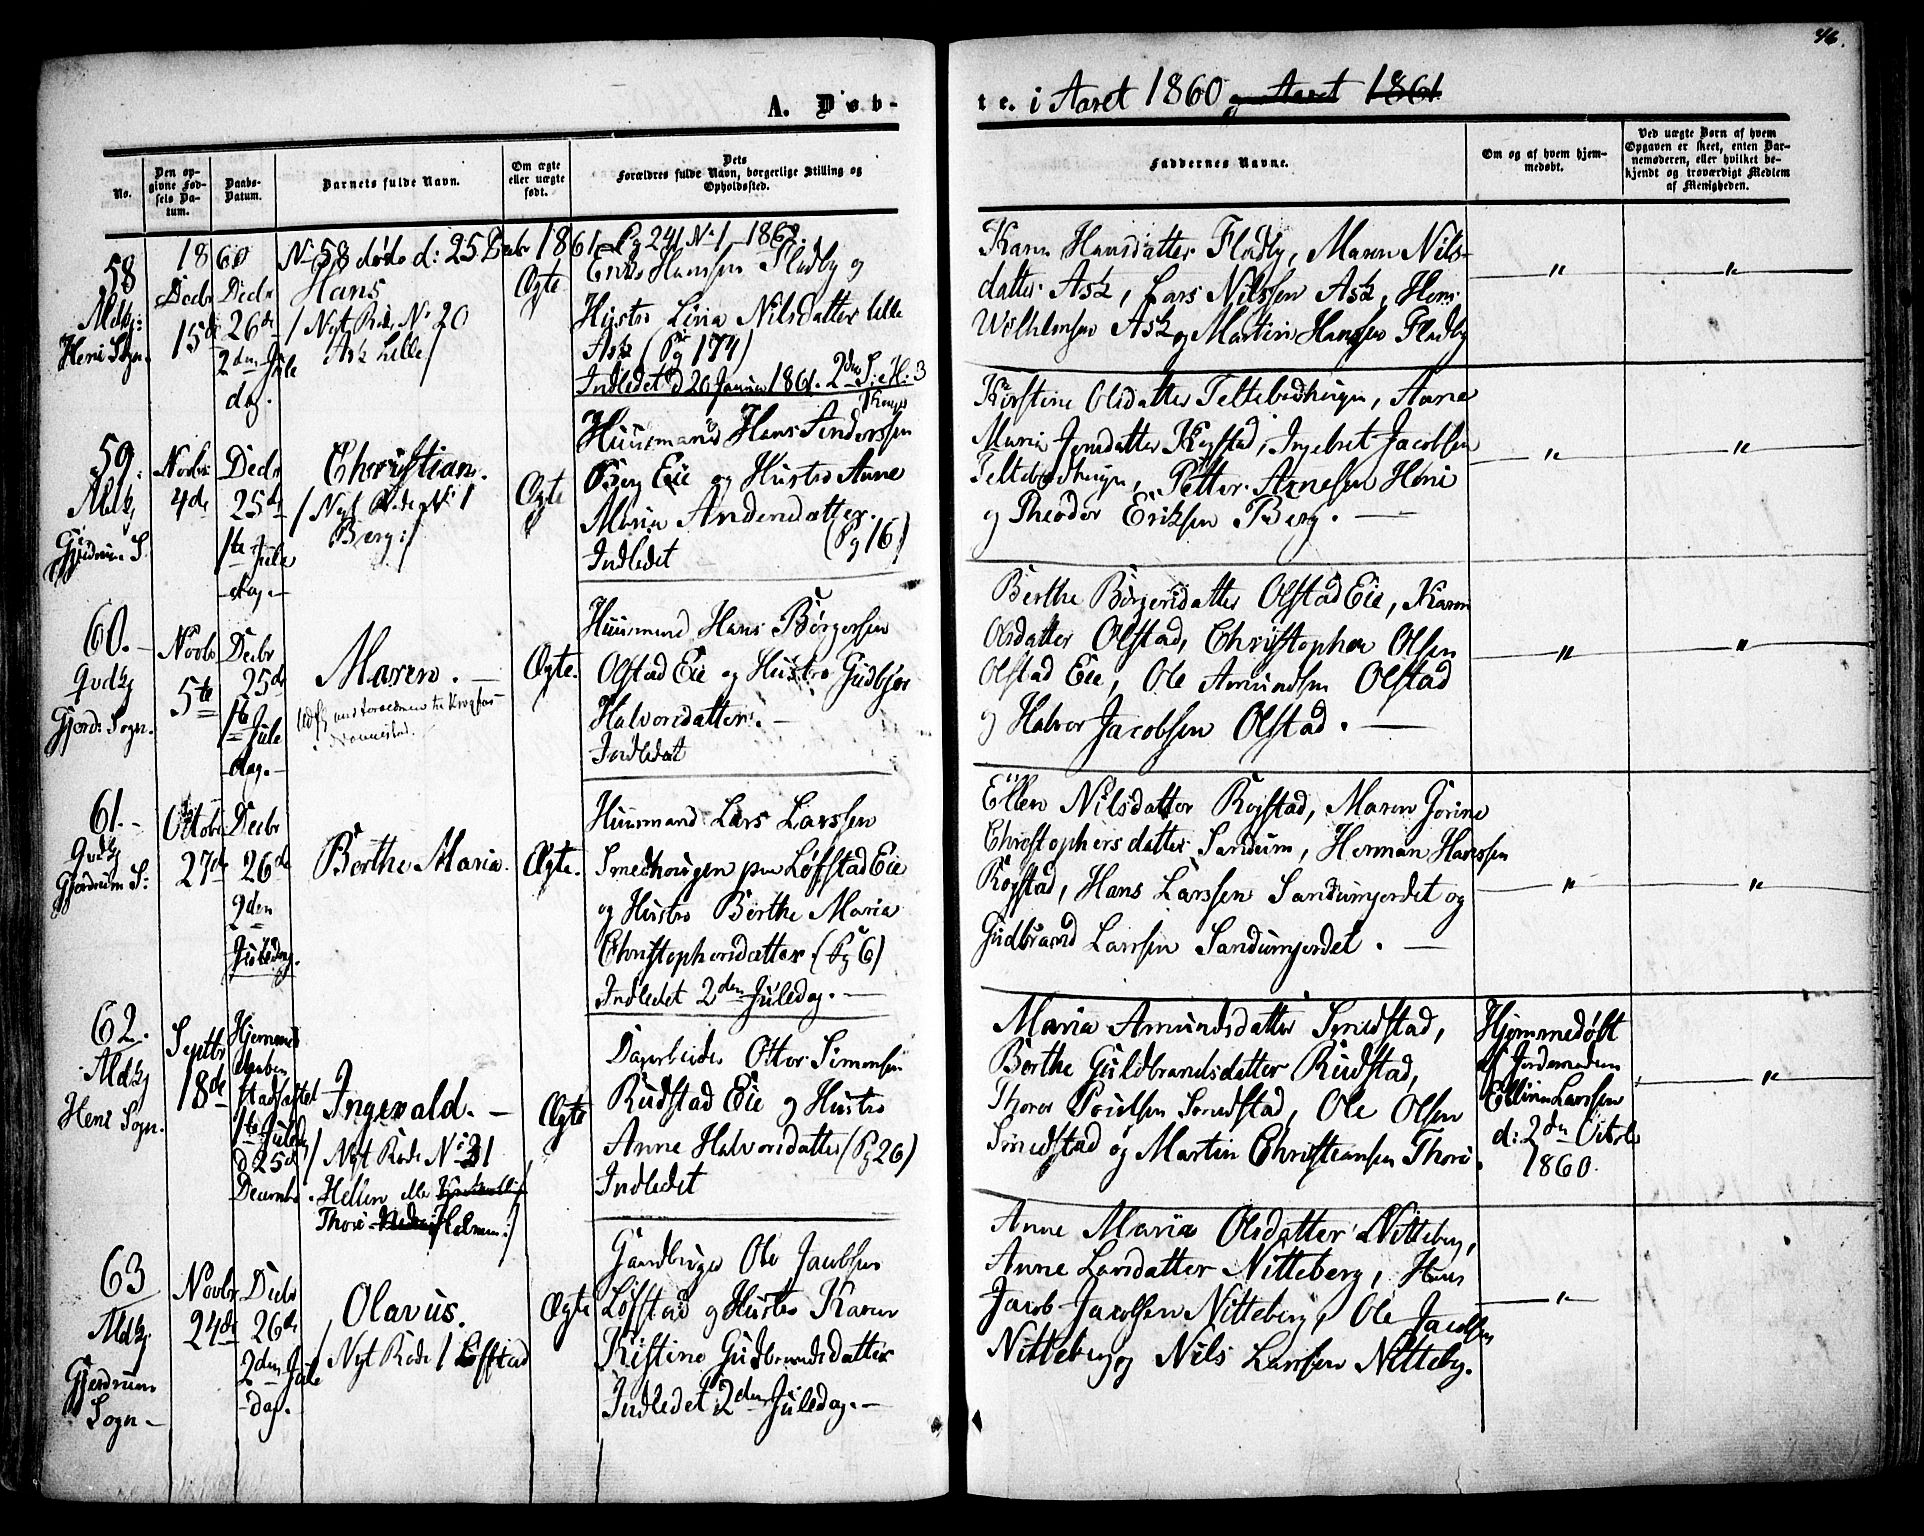 46.
A. Døb-
te. i Aaret 1860 og Aaret 1861
No.
Den op-
givne Fød-
sels Da-
tum.
Daabs-
Datum.
Barnets fulde Navn.
Om ægte
eller uægte
født.
Dets
Forældres fulde Navn, borgerlige Stilling og
Opholdssted.
Faddernes Navne.
Om og af hvem hjem-
medøbt.
Ved uægte Børn af hvem
Opgaven er skeet, enten Bar-
nemoderen, eller hvilket be-
kjendt og troværdigt Medlem
af Menigheden.
1860
No 58 døde d: 25 Decbr 1861 – Pg 241 No 1, 1862.
58
Mdkj:
Heni Sogn.
Decbr
15de
Decbr
26de
2den Jule
dag.
Hans
/ Nyt Rode No 20
Ask Lille /
Ægte
Hansen Fladby og
Hustro Lina Nilsdatter lille
Ask (Pg 174)
Indledet d 20 Januar 1861. 2den S: e: H: 3
Karen Hansdatter Fladby, Maren Nils-
datter Ask, Lars Nilssen Ask, Heni
Wilhelmsen Ask og Martin Hanssen Fladby
"
"
59.
Mdkj
Gjerdrum S.
Novbr
4de
Decbr
25de
1ste Jule
dag.
Christian.
/ Nyt Rode No 1
Berg /
Ægte
Huusmand Hans Anderssen
Berg Eie og Hustro Anne
Maria Andersdatter.
(Pg 16)
Indledet
Kirstine Olsdatter Teltebedhugen, Anne
Maria Jonsdatter Rogstad, Ingebret Jacobsen
Teltebedhugen, Petter Arnesen Heni
og Theodor Eriksen Berg.
"
"
60.
Qvdkj
Gjerd: Sogn.
Novbr
5te
Decbr
25de
1ste Jule
dag.
Maren.
Ægte.
Huusmand Hans Børgersen
Olstad Eie og Hustro Gudbjør
Halvorsdatter.
Indledet
Berthe Børgersdatter Olstad Eie, Karen
Olsdatter Olstad, Christopher Olsen
Olstad Eie, Ole Amundsen Olstad
og Halvor Jacobsen Olstad.
"
"
61.
Qvdkj
Gjerdrum S:
Octobr
27de
Decbr
26de
2den
Juledag.
Berthe Maria.
Ægte.
Huusmand Lars Larssen
Smedhougen paa Løfstad Eie
og Hustro Berthe Maria
Christophersdatter. (Pg 6)
Indledet 2den Juledag.
Ellen Nilsdatter Rogstad, Maren Jorine
Christophersdatter Sandum, Herman Hanssen
Rogstad, Hans Larssen Sandumjordet og
Gudbrand Larssen Sandumjordet.
"
"
62.
Mdkj
Heni Sogn.
Septbr
18de
Hjemme
daaben
stadfæstet
1ste Juledag
d 25de
Decembr.
Ingevald.
/ Nyt Rode No 21
Hellen eller
Thori Holmen /
Ægte
Dagarbeider Otter Simonsen
Rudstad Eie og Hustro
Anne Halvorsdatter (Pg 26)
Indledet
Maria Amundsdatter Smedstad,
Berthe Guldbrandsdatter Rudstad,
Thorer Poulsen Smedstad, Ole Olsen
Smedstad og Martin Christiansen Thori.
Hjemmedøbt
af Jordemoderen
Ellinn Larssen
d: 2den Octobr
1860.
"
63
Mdkj
Gjerdrum
Sogn
Novbr
24de
Decbr
26de
2den Jule
dag.
Olavus.
/ Nyt Rode 1 Løfstad
Ægte
Gaardbruger Ole Jacobsen
Løfstad og Hustro Karen
Kistine Gudbrandsdatter
Indledet 2den Juledag.
Anne Maria Olsdatter Nitteberg,
Anne Larsdatter Nitteberg, Hans
Jacob Jacobsen Nitteberg, Ole Jacobsen
Nitteberg og Nils Larssen Nitteby.
"